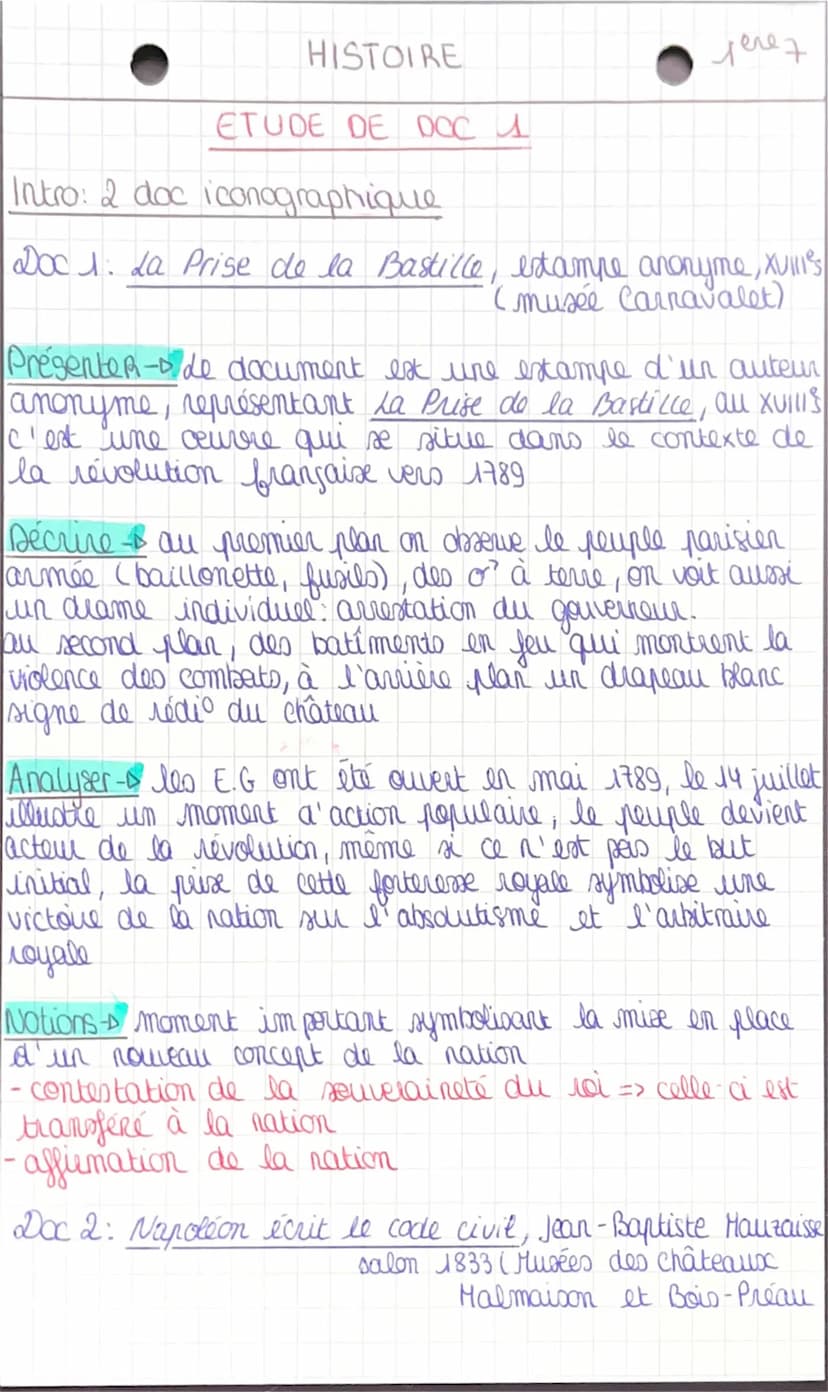 HISTOIRE
1ere 7
ETUDE DE DOC 1
Intro: 2 doc iconographique
Doc 1: La Prise de la Bastille, estampe anonyme, XVIIIes
(musée Carnavalet)
Présenter → Le document est une estampe d'un auteur
anonyme, représentant La Prise de la Bastille, au XVIIIs
c'est une œuvre qui se situe dans le contexte de
la révolution française vers 1789
Décrire → au premier plan on observe le peuple parisien
armée (baillonette, fusils), des à terre, on voit aussi
un drame individuel: arrestation du gouverneur.
au second plan, des batîments en feu qui montrent la
violence des combats, à l'arrière plan un drapeau blanc
signe de rédi° du château
Analyser → les E.G ont été ouvert en mai 1789, le 14 juillet
illustre un moment d'action populaire, le peuple devient
acteur de la révolution, même si ce n'est pas le but
initial, la prise de cette forteresse royale symbolise une
victoire de la nation sur l'absolutisme et l'arbitraire
royale
Notions → moment important symbolisant la mise en place
d'un nouveau concept de la nation
- contestation de la souveraineté du roi => celle-ci est
transféré à la nation
- affirmation de la nation
Doc 2: Napoléon écrit le code civil, Jean-Baptiste Mauzaisse
salon 1833 (Musées des châteaux
Malmaison et Bois-Préau